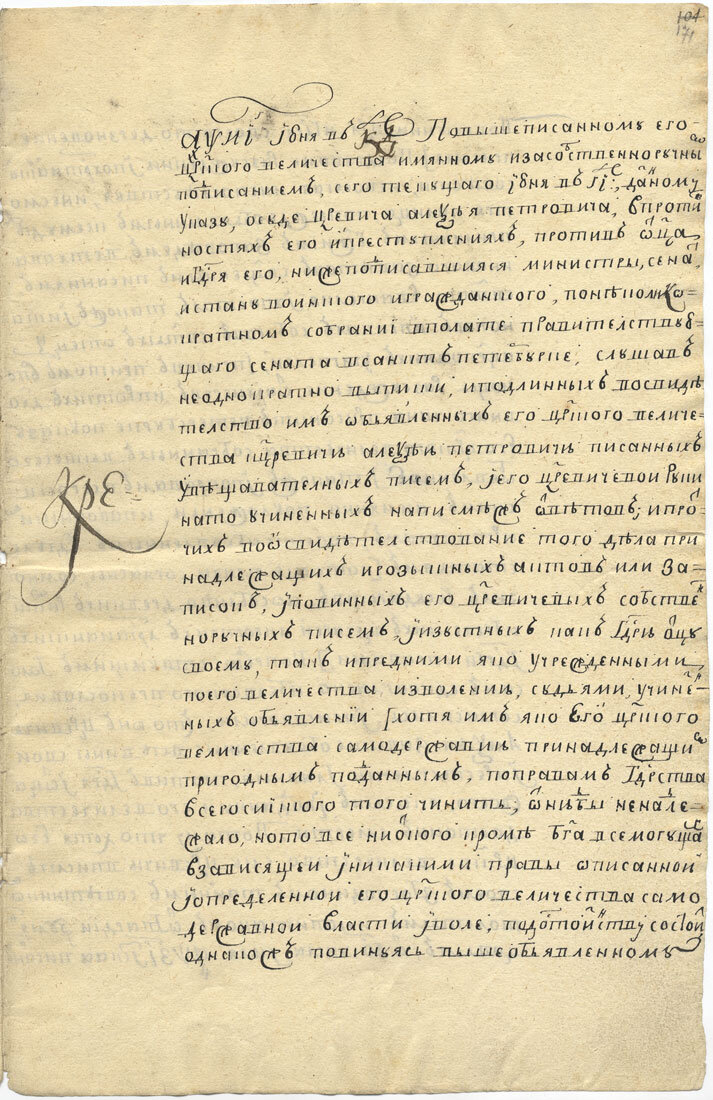 104
171
҂АѰИІ г҃ іюня въ к҃д Повышеписанному его
црс̾кого величества имянному изасобственноручны
пописаниемъ, сего текущаго іюня въ г҃і, даному
указу, осуде црвича алеѯѣя петровича, впроти
ностяхъ его ипреступленияхъ, против оца
и гдря его, нижеподписавшияся министры, сена
истану воинского игражданского, понѣколико
кратном собраниі вполате правителствую
щаго сената всанктъпетеръбурке, слушавъ
неоднократно выписки, иподлинныхъ позвидѣ
телство имъ объявленныхъ его црского величе
ства кцревичю алеѯѣю петровичю писанныхъ
увѣщавателныхъ писемъ, іего црвичевой руки
нато учиненныхъ написмѣ ѿвѣтовъ; ипро
чихъ посвидѣтелствование того дѣла при
надлежащихъ ирозыскныхъ актовъ или за
писокъ, іповинныхъ его црвичевыхъ собстве
норучныхъ писемъ, іизустныхъ какъ гдрю оцу
своему, такъ ипредними яко учрежденными
поего величества изволению, судьями учине
ныхъ объявлениі [хотя имъ яко его црского
величества самодержавию принадлежащи
природнымъ поданнымъ, поправамъ гдрства
всеросиского того чинить, ѿнюдь ненадле
жало, ното все ниодного кромѣ бга всемогуща
взависящеи іникакими правы описанной
іопределенной его црского величества само
державной власти іволе, подостоинству состоит
однакожъ повинуясь вышеобъявленному
Кре